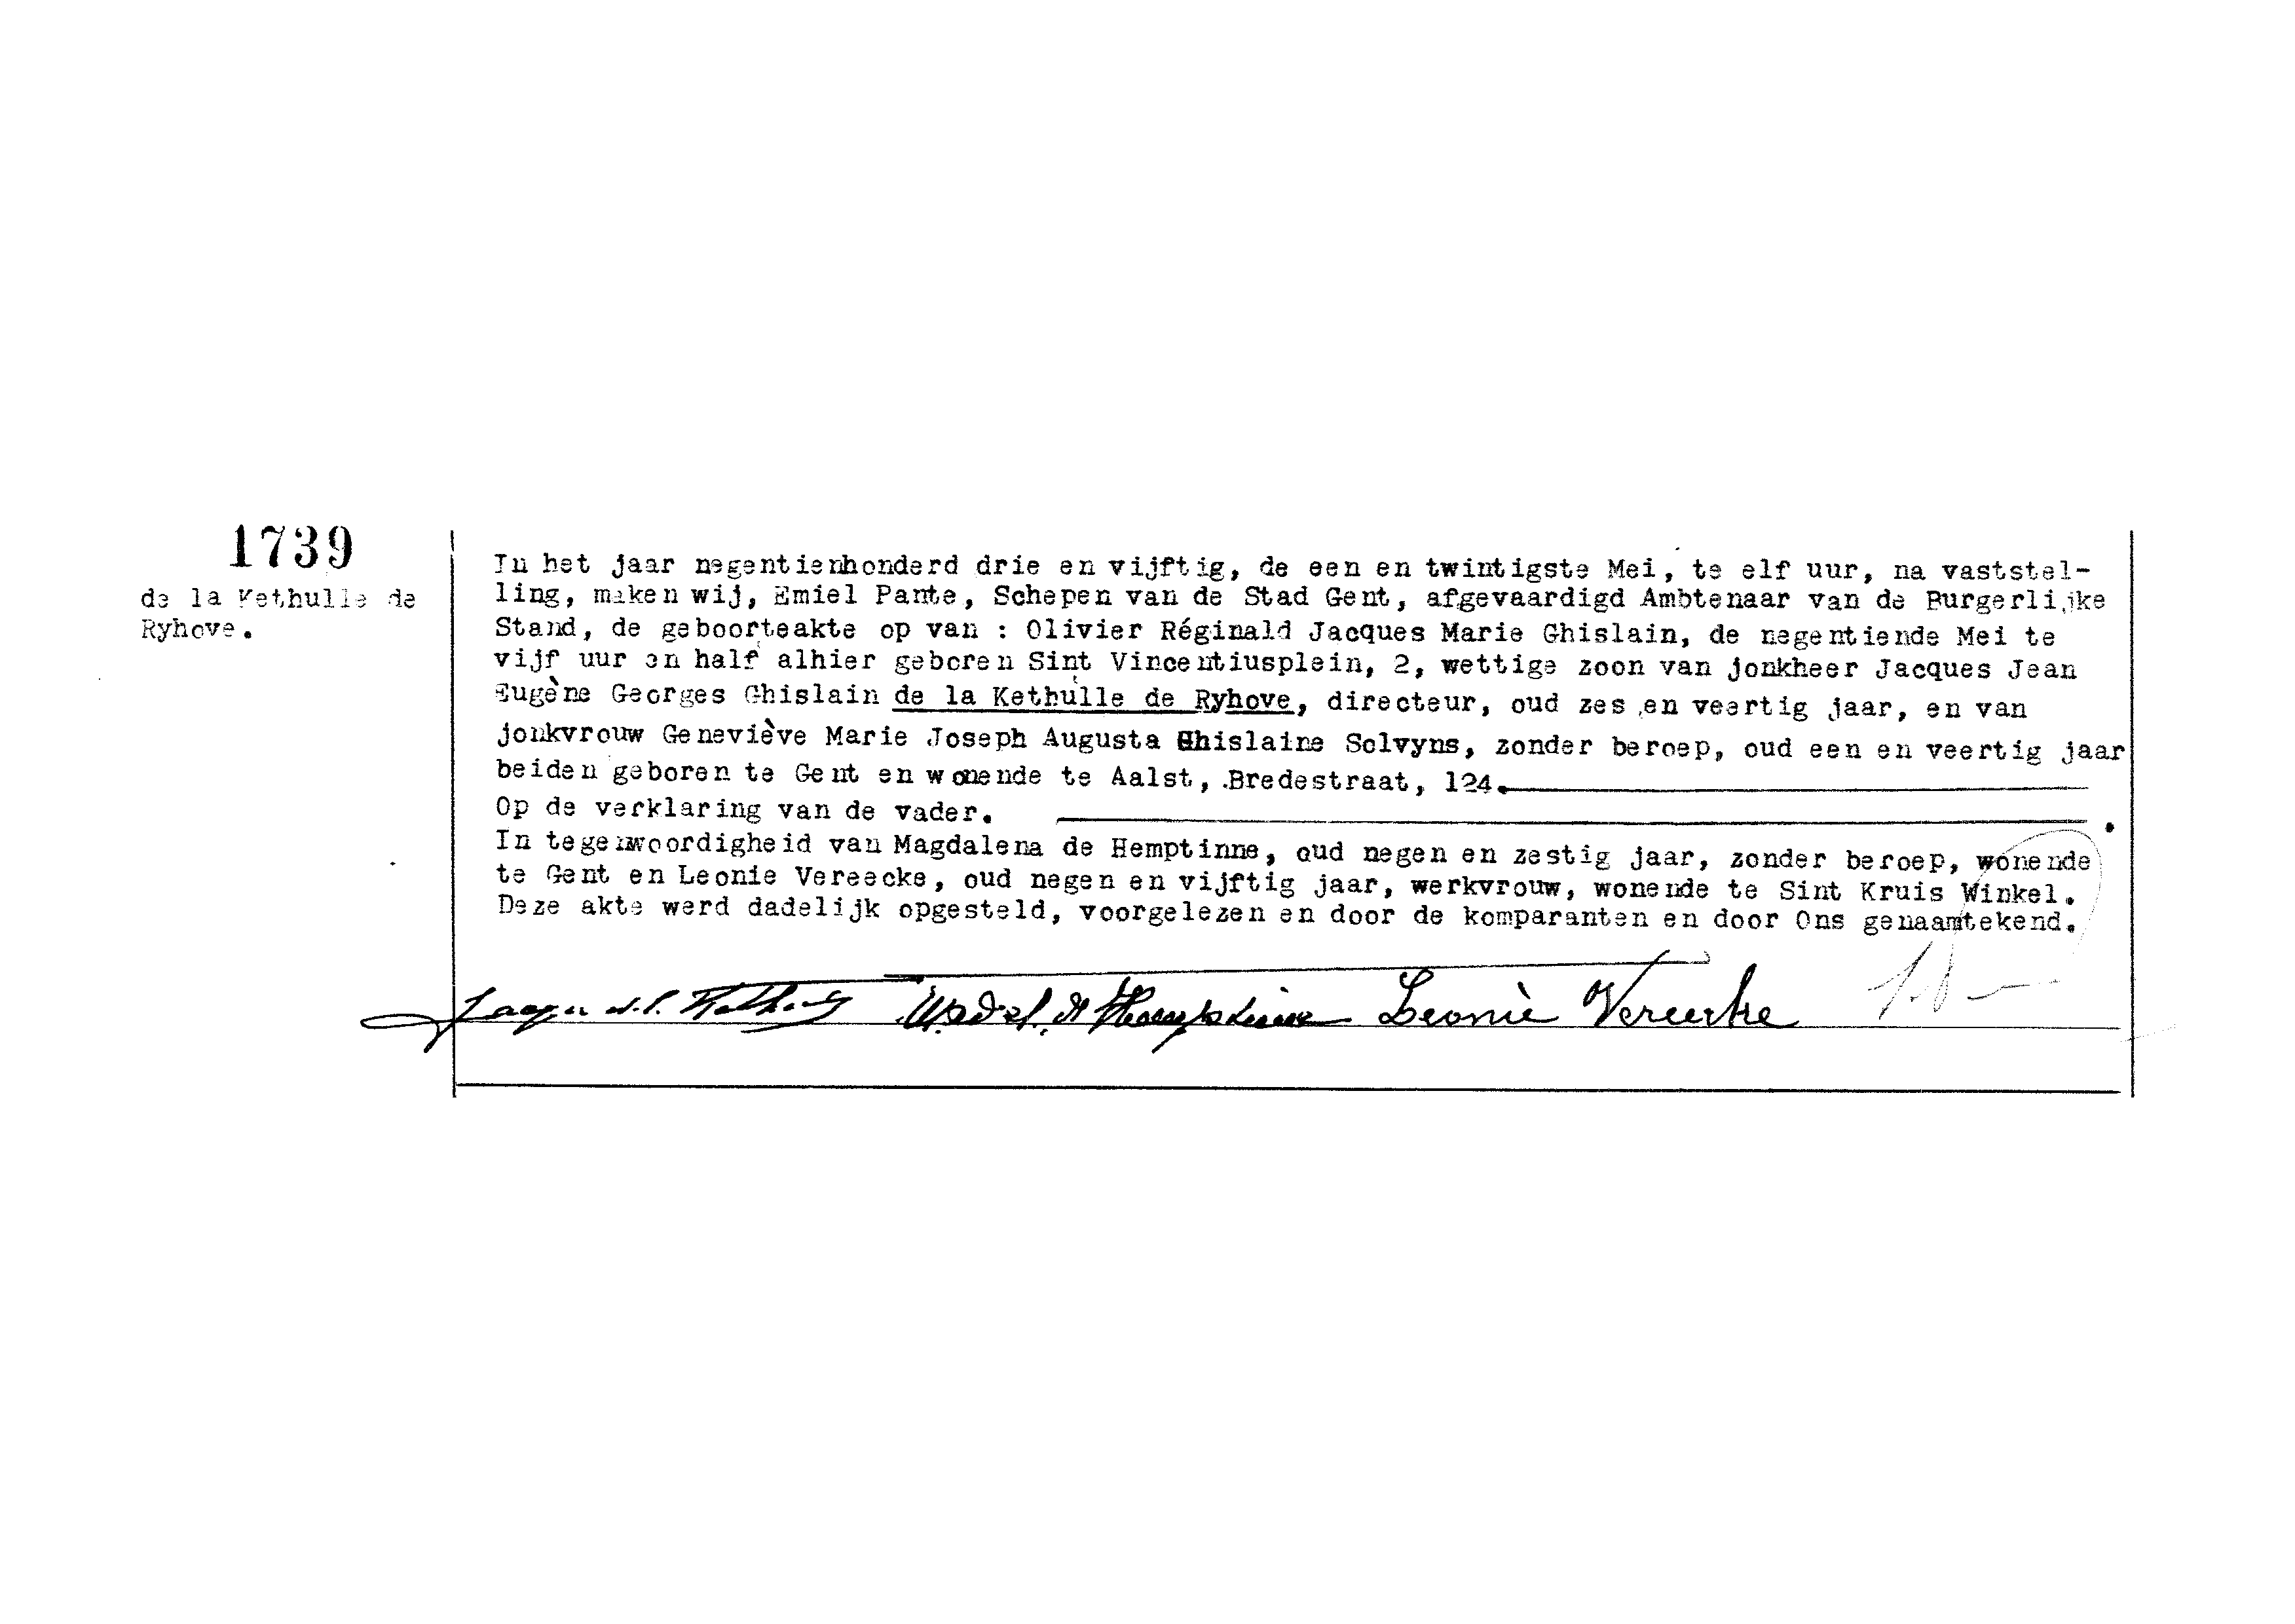 1739
de la Kethulle de
Ryhove.
In het jaar negentienhonderd drie en vijftig, de een en twintigste Mei, te elf uur, na vaststel-
ling, maken wij, Emiel Pante, Schepen van de Stad Gent, afgevaardigd Ambtenaar van de Burgerlijke
Stand, de geboorteakte op van : Olivier Réginald Jacques Marie Ghislain, de negentiende Mei te
vijf uur en half alhier geboren Sint Vincentiusplein, 2, wettige zoon van jonkheer Jacques Jean
Eugène Georges Ghislain de la Kethulle de Ryhove, directeur, oud zes en veertig jaar, en van
jonkvrouw Geneviève Marie Joseph Augusta Ghislaine Solvyns, zonder beroep, oud een en veertig jaar
beiden geboren te Gent en wonende te Aalst, Bredestraat, 124.
Op de verklaring van de vader.
In tegenwoordigheid van Magdalena de Hemptinne, oud negen en zestig jaar, zonder beroep, wonende
te Gent en Leonie Vereecke, oud negen en vijftig jaar, werkvrouw, wonende te Sint Kruis Winkel.
Deze akte werd dadelijk opgesteld, voorgelezen en door de komparanten en door Ons genaamtekend.
Leonie Vereecke